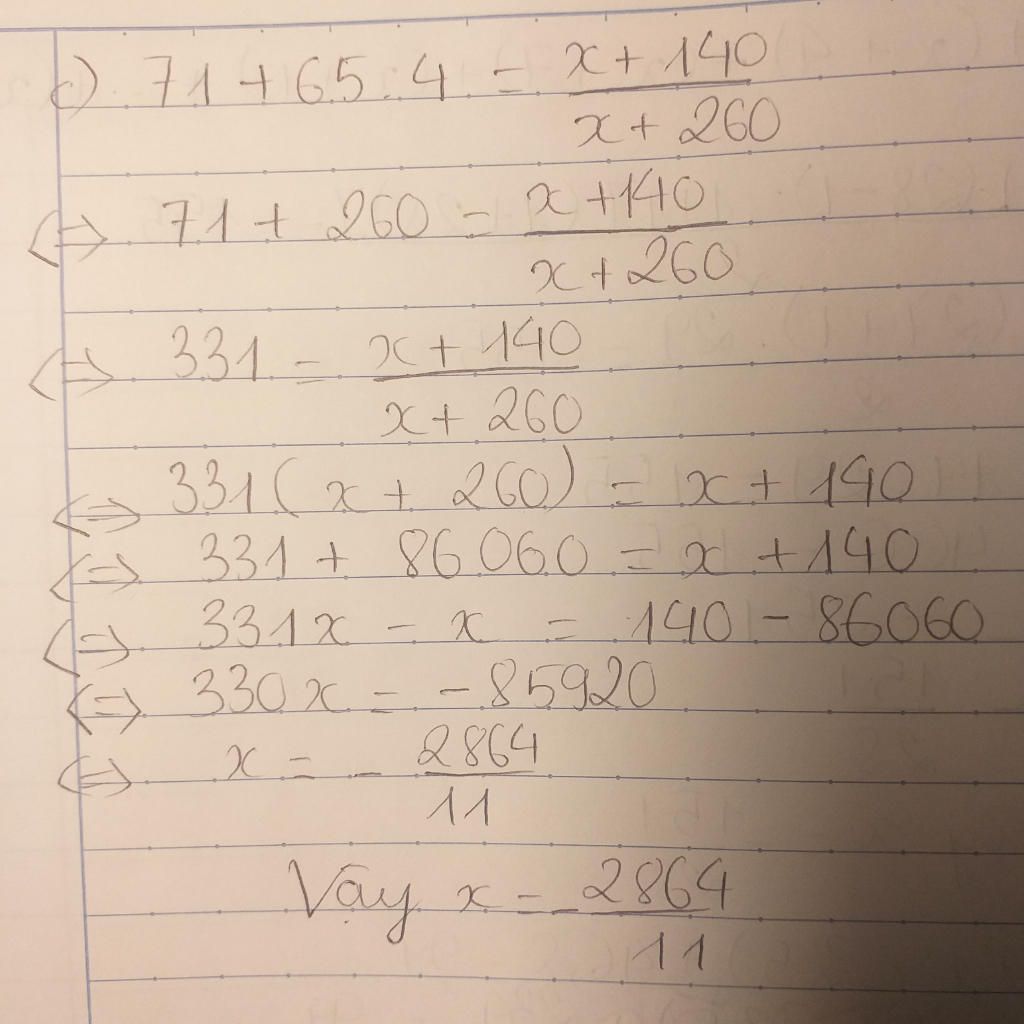 c) 71 + 65 . 4 = \frac{x + 140}{x + 260}
<=> 71 + 260 = \frac{x + 140}{x + 260}
<=> 331 = \frac{x + 140}{x + 260}
<=> 331 ( x + 260 ) = x + 140
<=> 331 + 86060 = x + 140
<=> 331x - x = 140 - 86060
<=> 330x = - 85920
<=> x = - \frac{2864}{11}
Vậy x = - \frac{2864}{11}